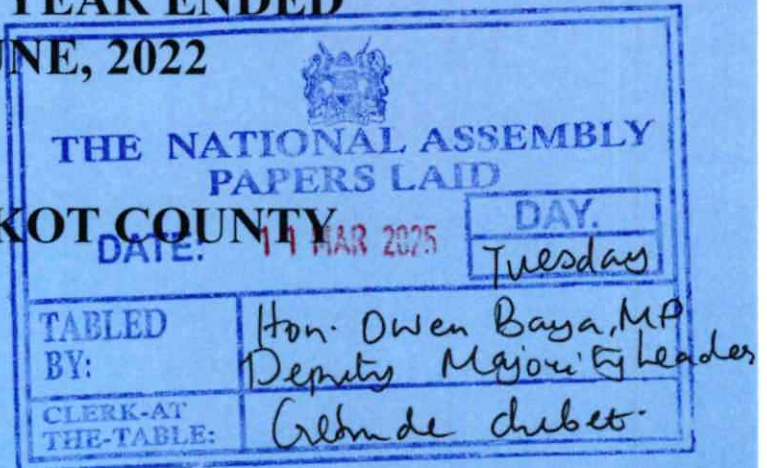 YEAR ENDED
UNE, 2022
THE NATIONAL ASSEMBLY
PAPERS LAID
KOT COUNTY
DATE: 11 MAR 2025
DAY.
Tuesday
TABLED
BY:
Hon. Owen Baya, MP
Deputy Majority Leader
CLERK-AT
THE-TABLE:
Chebet.